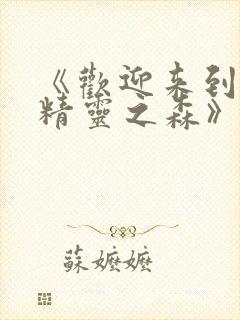 《歡迎来到
精靈之森》
蘇嬤嬤